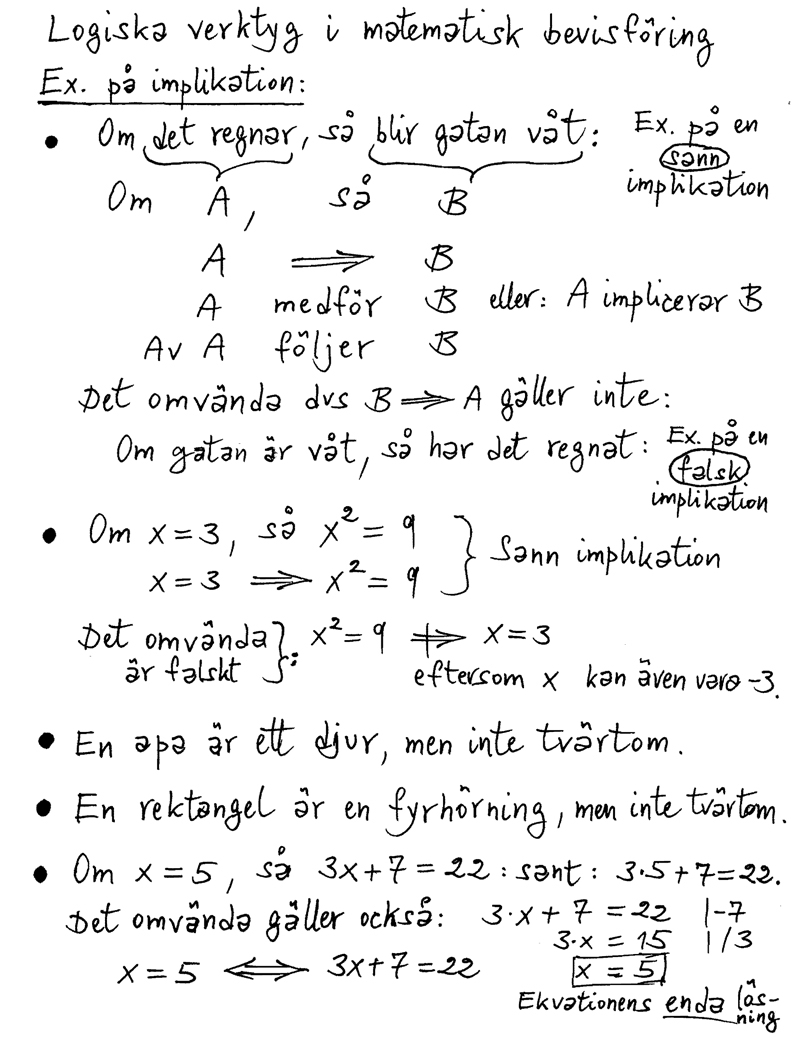 Logiska verktyg i matematisk bevisföring
Ex. på implikation:
• Om det regnar, så blir gatan våt: Ex. på en
sann
implikation
Om A, så B
A ⟹ B
A medför B eller: A implicerar B
Av A följer B
Det omvända dvs B ⟹ A gäller inte:
Om gatan är våt, så har det regnat: Ex. på en
falsk
implikation
• Om x = 3, så x² = 9
x = 3 ⟹ x² = 9 } Sann implikation
Det omvända
är falskt }: x² = 9 ⇏ x = 3
eftersom x kan även vara -3.
• En apa är ett djur, men inte tvärtom.
• En rektangel är en fyrhörning, men inte tvärtom.
• Om x = 5, så 3x + 7 = 22 : sant : 3·5 + 7 = 22.
Det omvända gäller också: 3·x + 7 = 22 |-7
3·x = 15 | /3
x = 5 ⟺ 3x + 7 = 22 x = 5
Ekvationens enda lös-
ning